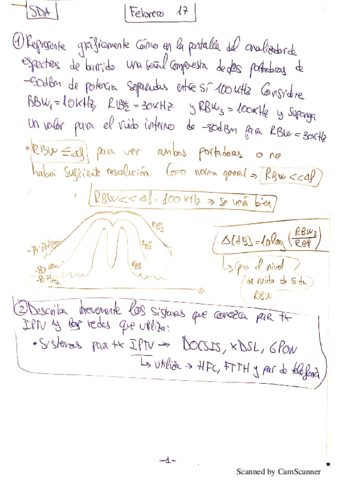 SDA
Febrero 17
① Represente gráficamente cómo en la pantalla del analizador de
espectros de barrido una señal compuesta de dos portadoras de
-50dBm de potencia separadas entre sí 100 KHz. Considere
RBW₁ = 10KHz, RBW₂ = 30KHz y RBW₃ = 100KHz y suponga
un valor para el ruido interno de -80dBm para RBW = 30KHz
• RBW ≤ Δf para ver ambas portadoras o no
habrá suficiente resolución. Como norma general → RBW << Δf
RBW << Δf = 100 KHz → se verá bien
Δ[dB] = 10log
por el nivel
de ruido
RBW
② Describa brevemente los sistemas que conozca para tx
IPTV y las redes que utiliza:
• Sistemas para tx IPTV → DOCSIS, xDSL, GPON
↳ utiliza → HFC, FTTH y par de telefonía
-1-
Scanned by CamScanner